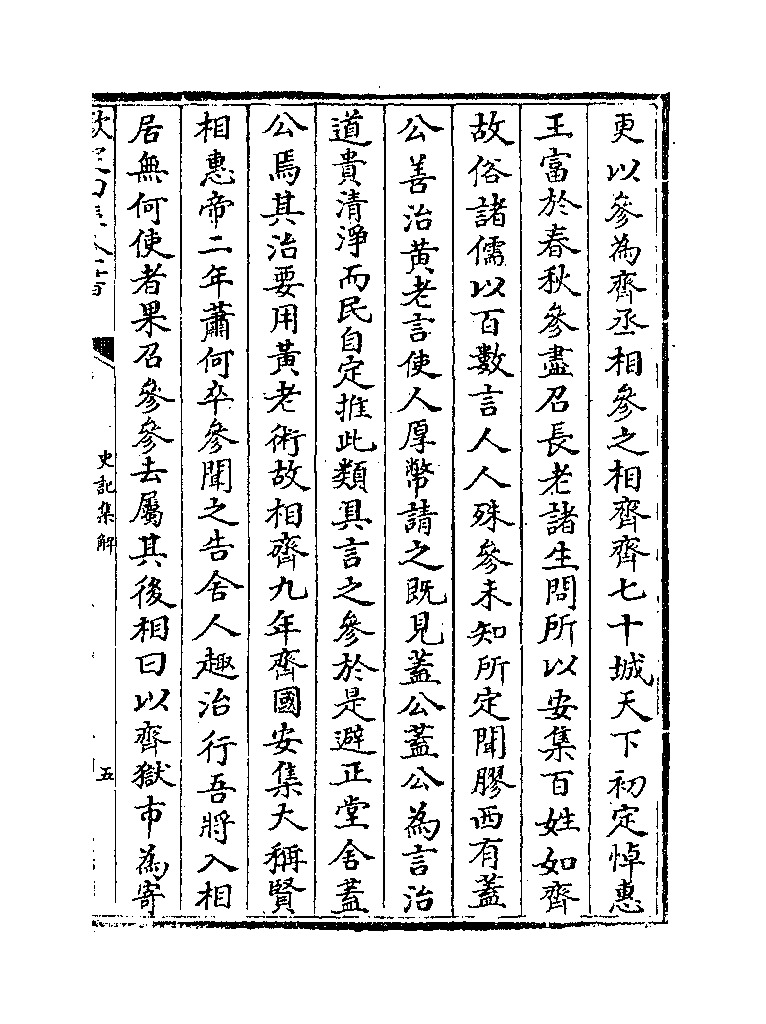 更以參為齊丞相參之相齊齊七十城天下初定悼惠
王富於春秋參盡召長老諸生問所以安集百姓如齊
故俗諸儒以百數言人人殊參未知所定聞膠西有蓋
公善治黃老言使人厚幣請之既見蓋公蓋公為言治
道貴清淨而民自定推此類具言之參於是避正堂舍蓋
公焉其治要用黃老術故相齊九年齊國安集大稱賢
相惠帝二年蕭何卒參聞之告舍人趣治行吾將入相
居無何使者果召參參去屬其後相曰以齊獄市為寄
史記集解
五